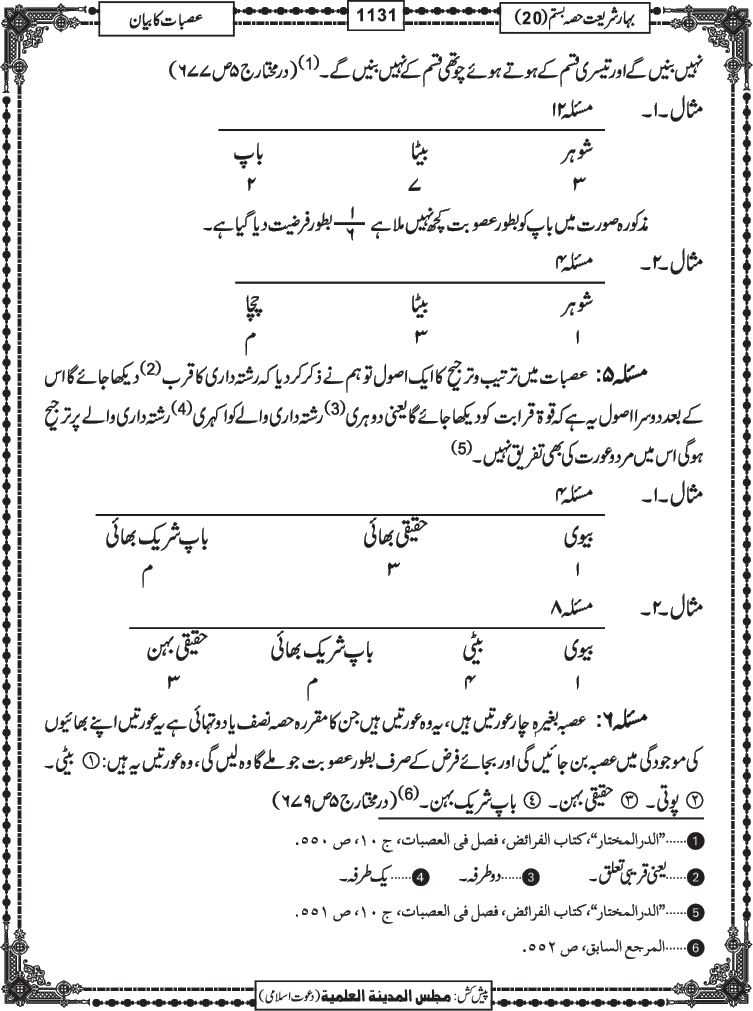 بہار شریعت حصہ بستم (20)
1131
عصبات کا بیان
نہیں بنیں گے اور تیسری قسم کے ہوتے ہوئے چوتھی قسم کے نہیں بنیں گے۔(1) (درمختار ج ۵ ص ۶۷۷)
مثال۔۱۔ مسئلہ ۱۲
شوہر بیٹا باپ
۳ ۷ ۲
مذکورہ صورت میں باپ کو بطور عصوبت کچھ نہیں ملا ہے ۱/۶ بطور فرضیت دیا گیا ہے۔
مثال۔۲۔ مسئلہ ۴
شوہر بیٹا چچا
۱ ۳ م
مسئلہ ۵: عصبات میں ترتیب و ترجیح کا ایک اصول تو ہم نے ذکر کر دیا کہ رشتہ داری کا قرب (2) دیکھا جائے گا اس
کے بعد دوسرا اصول یہ ہے کہ قوۃ قرابت کو دیکھا جائے گا یعنی دوہری (3) رشتہ داری والے کو اکہری (4) رشتہ داری والے پر ترجیح
ہوگی اس میں مرد و عورت کی بھی تفریق نہیں۔ (5)
مثال۔۱۔ مسئلہ ۴
بیوی حقیقی بھائی باپ شریک بھائی
۱ ۳ م
مثال۔۲۔ مسئلہ ۸
بیوی بیٹی باپ شریک بھائی حقیقی بہن
۱ ۴ م ۳
مسئلہ ۶: عصبہ بغیرہٖ چار عورتیں ہیں، یہ وہ عورتیں ہیں جن کا مقررہ حصہ نصف یا دو تہائی ہے یہ عورتیں اپنے بھائیوں
کی موجودگی میں عصبہ بن جائیں گی اور بجائے فرض کے صرف بطور عصوبت جو ملے گا وہ لیں گی، وہ عورتیں یہ ہیں: ① بیٹی۔
② پوتی۔ ③ حقیقی بہن۔ ④ باپ شریک بہن۔ (6) (درمختار ج ۵ ص ۶۷۹)
❶......"الدرالمختار"، کتاب الفرائض، فصل فی العصبات، ج ۱۰، ص ۵۵۰.
❷......یعنی قریبی تعلق۔ ❸......دو طرفہ۔ ❹......یک طرفہ۔
❺......"الدرالمختار"، کتاب الفرائض، فصل فی العصبات، ج ۱۰، ص ۵۵۱.
❻......المرجع السابق، ص ۵۵۲.
پیش کش: مجلس المدینة العلمیة (دعوت اسلامی)